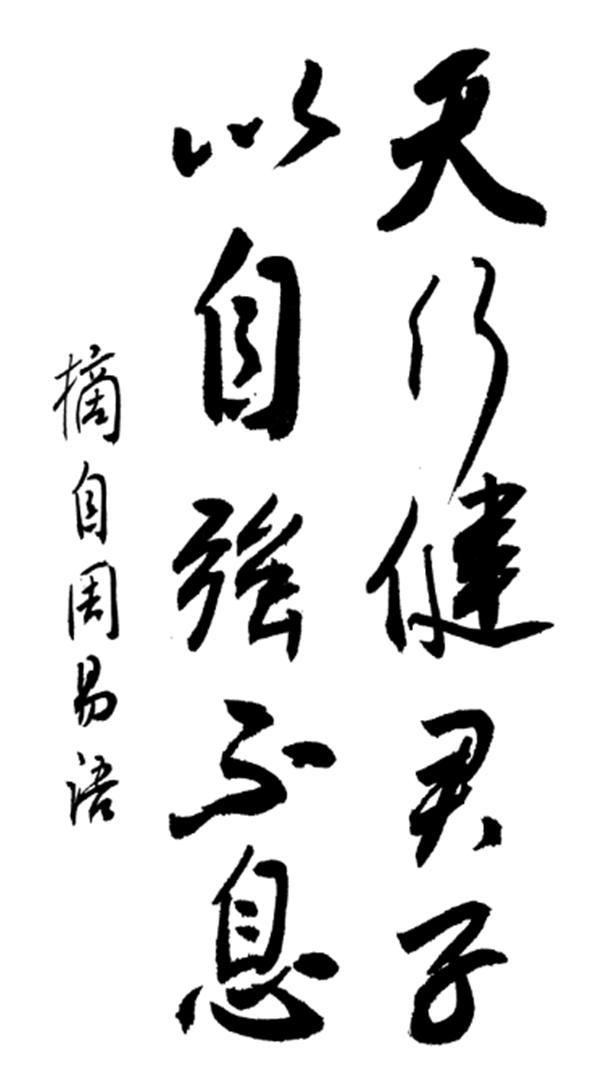 天行健君子
以自強不息
摘自周易语